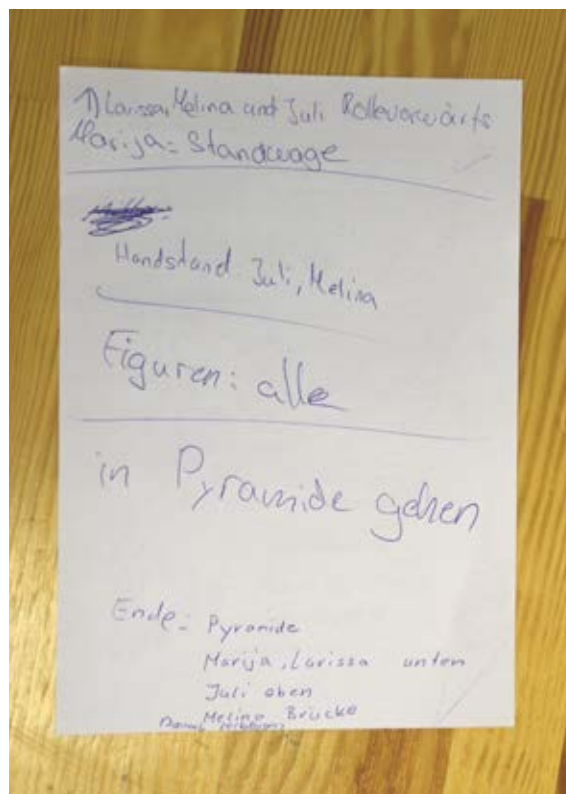 1) Larissa, Melina und Juli Rollevorwärts
Marija = Standwage
Handstand Juli, Melina
Figuren: alle
in Pyramide gehen
Ende: Pyramide
Marija, Larissa unten
Juli oben
Melina Brücke